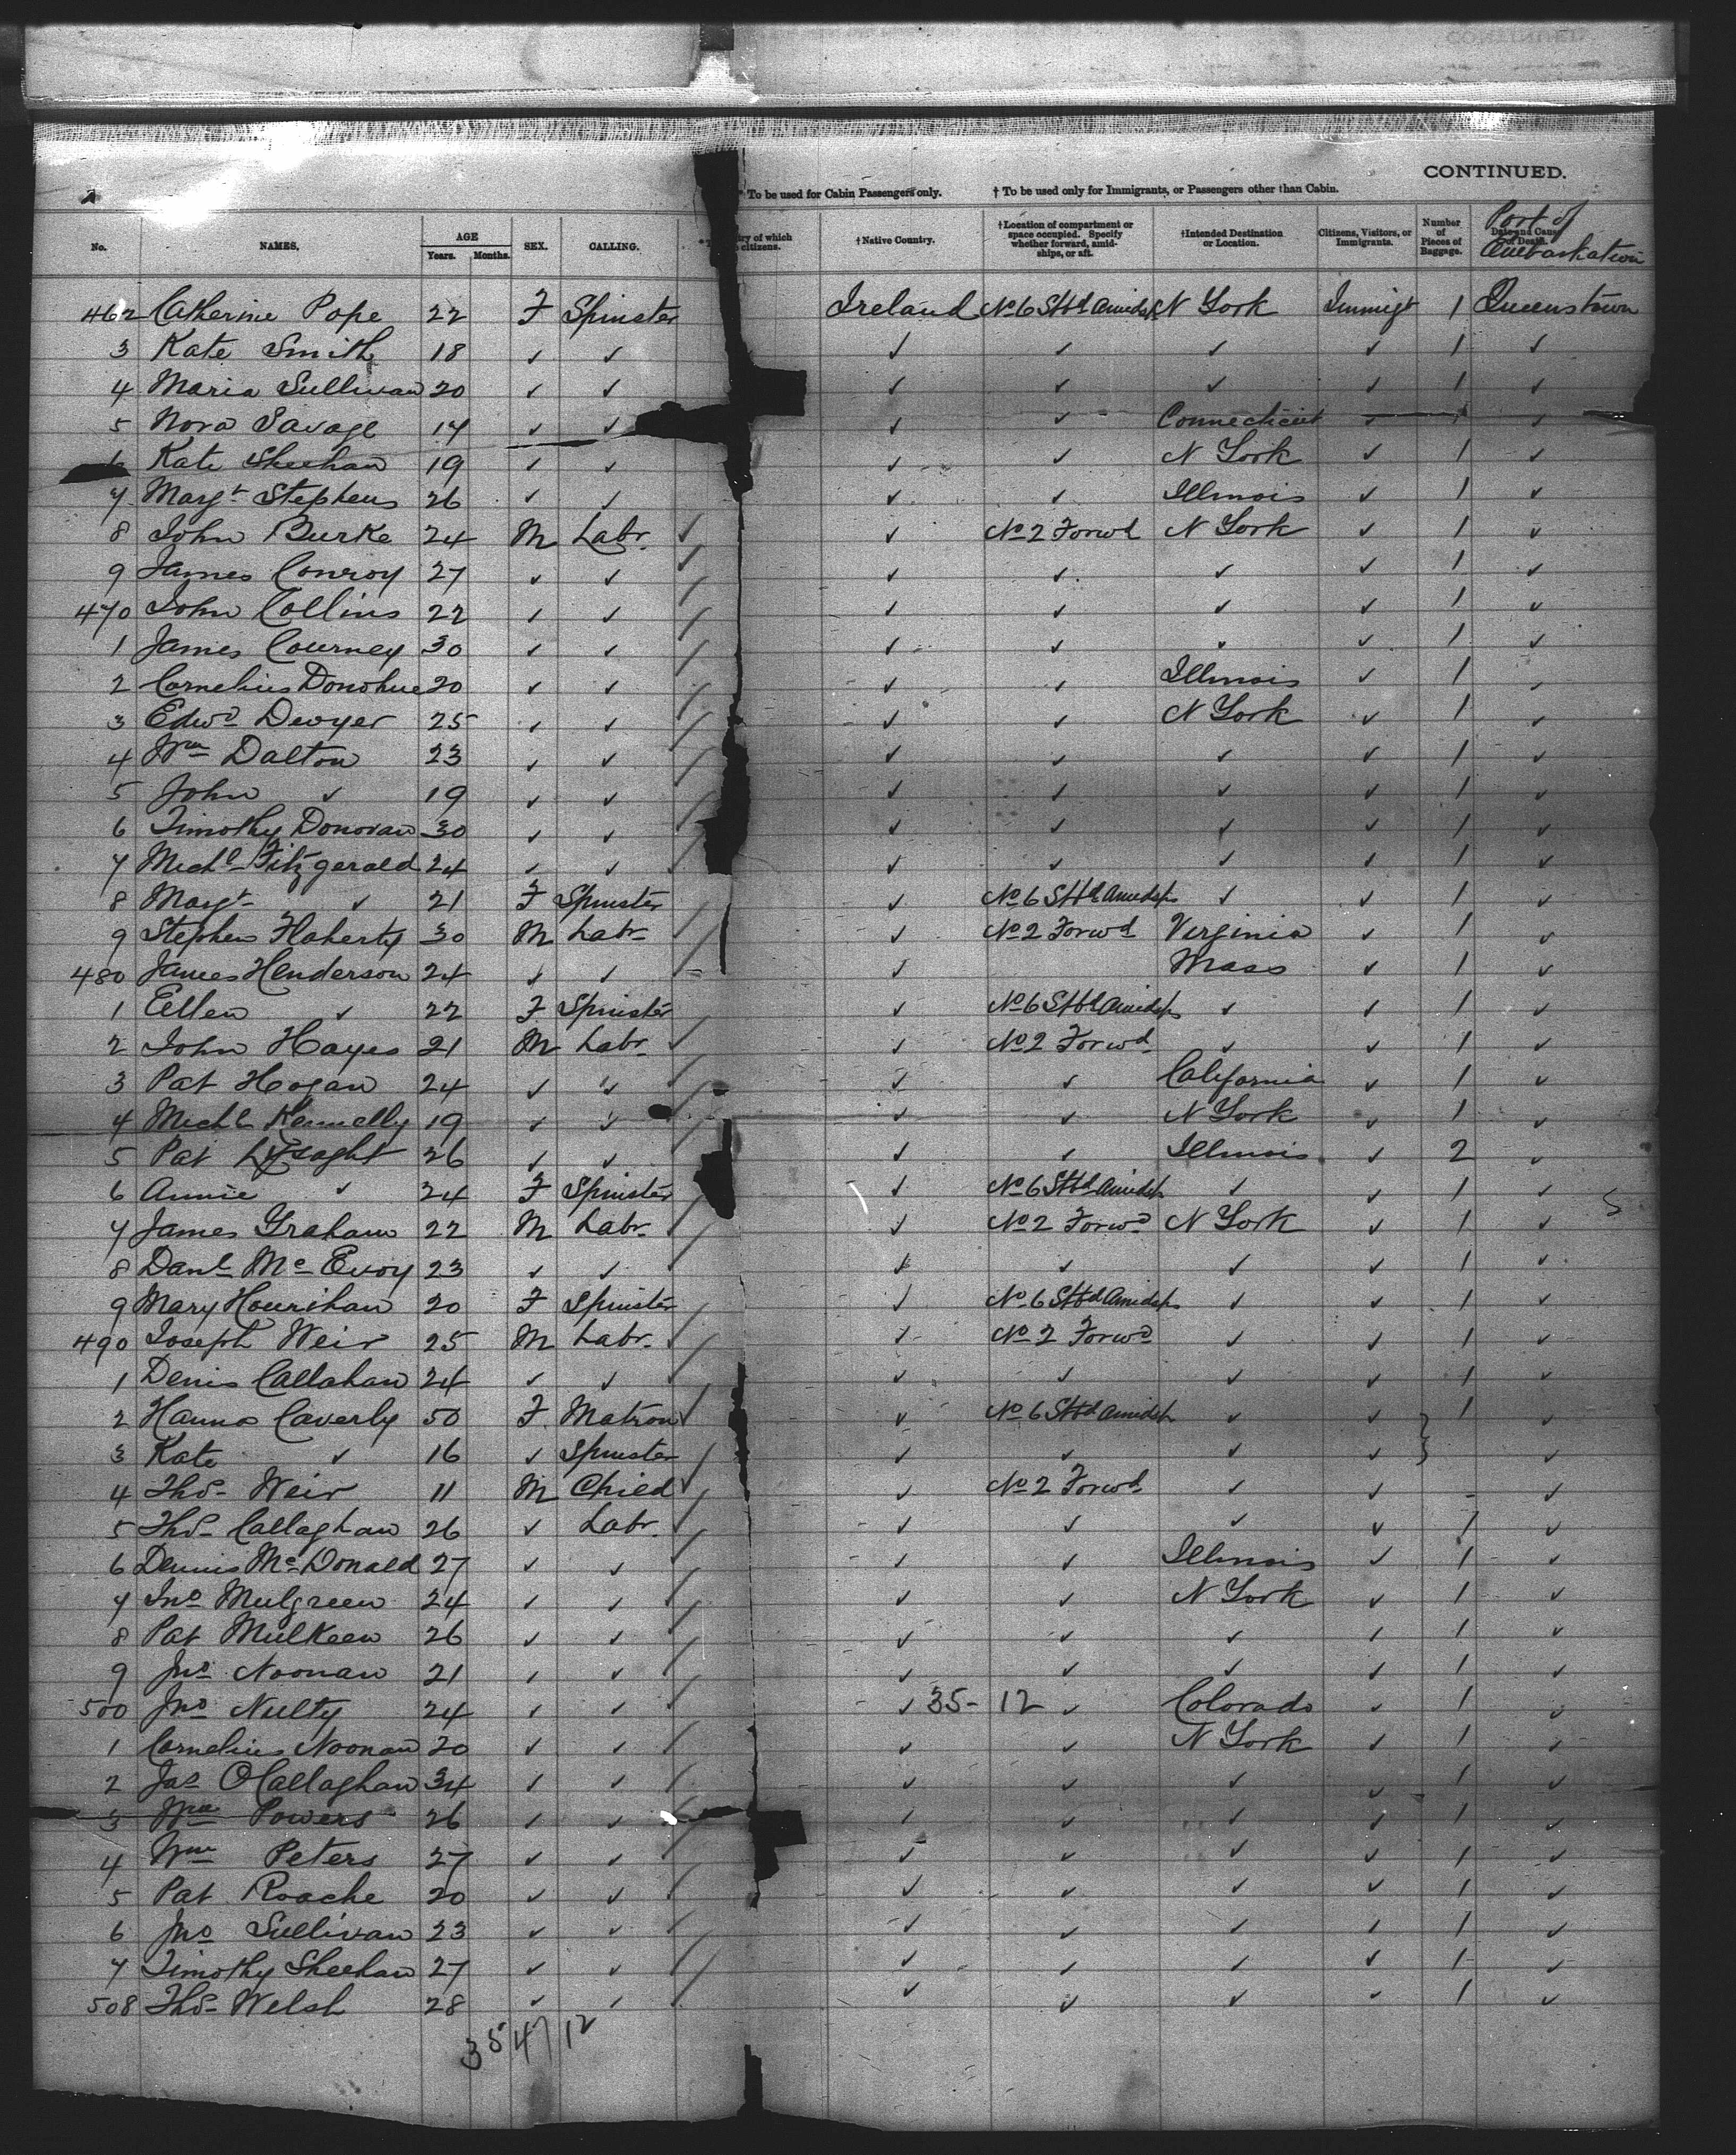 CONTINUED.
* To be used for Cabin Passengers only. † To be used only for Immigrants, or Passengers other than Cabin.
No. NAMES, AGE Years. Months. SEX. CALLING. †Native Country. †Location of compartment or space occupied. Specify whether forward, amidships, or aft. †Intended Destination or Location. Citizens, Visitors, or Immigrants. Number of Pieces of Baggage. Port of Embarkation
462 Catherine Pope 22 F Spinster Ireland No 6 Stbd Amidsh N York Immigt 1 Queenstown
3 Kate Smith 18 ✓ ✓ ✓ ✓ ✓ ✓ 1 ✓
4 Maria Sullivan 20 ✓ ✓ ✓ ✓ ✓ ✓ 1 ✓
5 Nora Savage 14 ✓ ✓ ✓ ✓ Connecticut ✓ 1 ✓
6 Kate Sheehan 19 ✓ ✓ ✓ ✓ N York ✓ 1 ✓
7 Margt Stephens 26 ✓ ✓ ✓ ✓ Illinois ✓ 1 ✓
8 John Burke 24 M Labr. ✓ No 2 Forwd N York ✓ 1 ✓
9 James Conroy 27 ✓ ✓ ✓ ✓ ✓ ✓ 1 ✓
470 John Collins 22 ✓ ✓ ✓ ✓ ✓ ✓ 1 ✓
1 James Courney 30 ✓ ✓ ✓ ✓ ✓ ✓ 1 ✓
2 Cornelius Donohue 20 ✓ ✓ ✓ ✓ Illinois ✓ 1 ✓
3 Edwd Dwyer 25 ✓ ✓ ✓ ✓ N York ✓ 1 ✓
4 Wm Dalton 23 ✓ ✓ ✓ ✓ ✓ ✓ 1 ✓
5 John ✓ 19 ✓ ✓ ✓ ✓ ✓ ✓ 1 ✓
6 Timothy Donovan 30 ✓ ✓ ✓ ✓ ✓ ✓ 1 ✓
7 Michl Fitzgerald 24 ✓ ✓ ✓ ✓ ✓ ✓ 1 ✓
8 Margt ✓ 21 F Spinster ✓ No 6 Stbd Amidsh ✓ ✓ 1 ✓
9 Stephen Flaherty 30 M Labr ✓ No 2 Forwd Virginia ✓ 1 ✓
480 James Henderson 24 ✓ ✓ ✓ Mass ✓ 1 ✓
1 Ellen ✓ 22 F Spinster ✓ No 6 Stbd Amidsh ✓ ✓ 1 ✓
2 John Hayes 21 M Labr ✓ No 2 Forwd ✓ ✓ 1 ✓
3 Pat Hogan 24 ✓ ✓ ✓ ✓ California ✓ 1 ✓
4 Michl Kennelly 19 ✓ ✓ ✓ ✓ N York ✓ 1 ✓
5 Pat Lysaght 26 ✓ ✓ ✓ ✓ Illinois ✓ 2 ✓
6 Annie ✓ 24 F Spinster ✓ No 6 Stbd Amidsh ✓ ✓ 1 ✓
7 James Graham 22 M Labr ✓ No 2 Forwd N York ✓ 1 ✓
8 Danl McEvoy 23 ✓ ✓ ✓ ✓ ✓ ✓ 1 ✓
9 Mary Hourihan 20 F Spinster ✓ No 6 Stbd Amidsh ✓ ✓ 1 ✓
490 Joseph Weir 25 M Labr. ✓ No 2 Forwd ✓ ✓ 1 ✓
1 Denis Callahan 24 ✓ ✓ ✓ ✓ ✓ ✓ 1 ✓
2 Hanna Caverly 50 F Matron ✓ No 6 Stbd Amidsh ✓ ✓ 1 ✓
3 Kate ✓ 16 ✓ Spinster ✓ ✓ ✓ ✓ ✓
4 Thos Weir 11 M Child ✓ No 2 Forwd ✓ ✓ - ✓
5 Thos Callaghan 26 ✓ Labr. ✓ ✓ ✓ ✓ 1 ✓
6 Dennis McDonald 27 ✓ ✓ ✓ ✓ Illinois ✓ 1 ✓
7 Jno Mulgreen 24 ✓ ✓ ✓ ✓ N York ✓ 1 ✓
8 Pat Mulkeen 26 ✓ ✓ ✓ ✓ ✓ ✓ 1 ✓
9 Jno Noonan 21 ✓ ✓ ✓ ✓ ✓ ✓ 1 ✓
500 Jno Nulty 24 ✓ ✓ ✓ 35- 12 ✓ Colorado ✓ 1 ✓
1 Cornelius Noonan 20 ✓ ✓ ✓ ✓ N York ✓ 1 ✓
2 Jas OCallaghan 34 ✓ ✓ ✓ ✓ ✓ ✓ 1 ✓
3 Wm Powers 26 ✓ ✓ ✓ ✓ ✓ ✓ 1 ✓
4 Wm Peters 27 ✓ ✓ ✓ ✓ ✓ ✓ 1 ✓
5 Pat Roache 20 ✓ ✓ ✓ ✓ ✓ ✓ 1 ✓
6 Jno Sullivan 23 ✓ ✓ ✓ ✓ ✓ ✓ 1 ✓
7 Timothy Sheehan 27 ✓ ✓ ✓ ✓ ✓ ✓ 1 ✓
508 Thos Welsh 28 ✓ ✓ ✓ ✓ ✓ ✓ 1 ✓
35 47 12